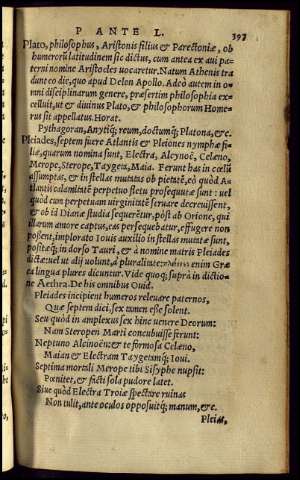 P ANTE L. 393
Plato, philosophus, Aristonis filius & Parectoniæ, ob
humerorũ latitudinem sic dictus, cum antea ex aui pa-
terni nomine Aristocles uocaretur. Natum Athenis tra
dunt eo die, quo apud Delon Apollo. Adeò autem in o-
mni disciplinarum genere, præsertim philosophia ex-
celluit, ut & diuinus Plato, & philosophorum Home-
rus sit appellatus. Horat.
Pythagoran, Anytiq; reum, doctumq; Platona, &c.
Pleiades, septem fuere Atlantis & Pleiones nymphæ fi-
liæ, quarum nomina sunt, Electra, Alcynoë, Celæno,
Merope, Sterope, Taygeta, Maia. Ferunt has in cœlũ
assumptas, & in stellas mutatas ob pietatē, eò quòd A-
tlantis calamitatē perpetuo fletu prosequutæ sunt: uel
quòd cum perpetuam uirginitatē seruare decreuissent,
& ob id Dianæ studia sequerētur, pòst ab Orione, qui
illarum amore captus, eas persequebatur, effugere non
possent, implorato Iouis auxilio in stellas mutatæ sunt,
positæq; in dorso Tauri, & à nomine matris Pleiades
dictæ: uel ut alij uolunt, à pluralitate: enim Græ
ca lingua plures dicuntur. Vide quoq; suprà in dictio-
ne Aethra. De his omnibus Ouid.
Pleiades incipient humeros releuare paternos,
Quæ septem dici, sex tamen esse solent.
Seu quòd in amplexus sex hinc uenere Deorum:
Nam Steropen Marti concubuisse ferunt:
Neptuno Alcinoën: & te formosa Celæno,
Maian & Electram Taygetẽq; Ioui.
Septima mortali Merope tibi Sisyphe nupsit:
Pœnitet, & facti sola pudore latet.
Siue quòd Electra Troiæ spectare ruinas
Non tulit, ante oculos opposuitq; manum, &c.
Pleias,